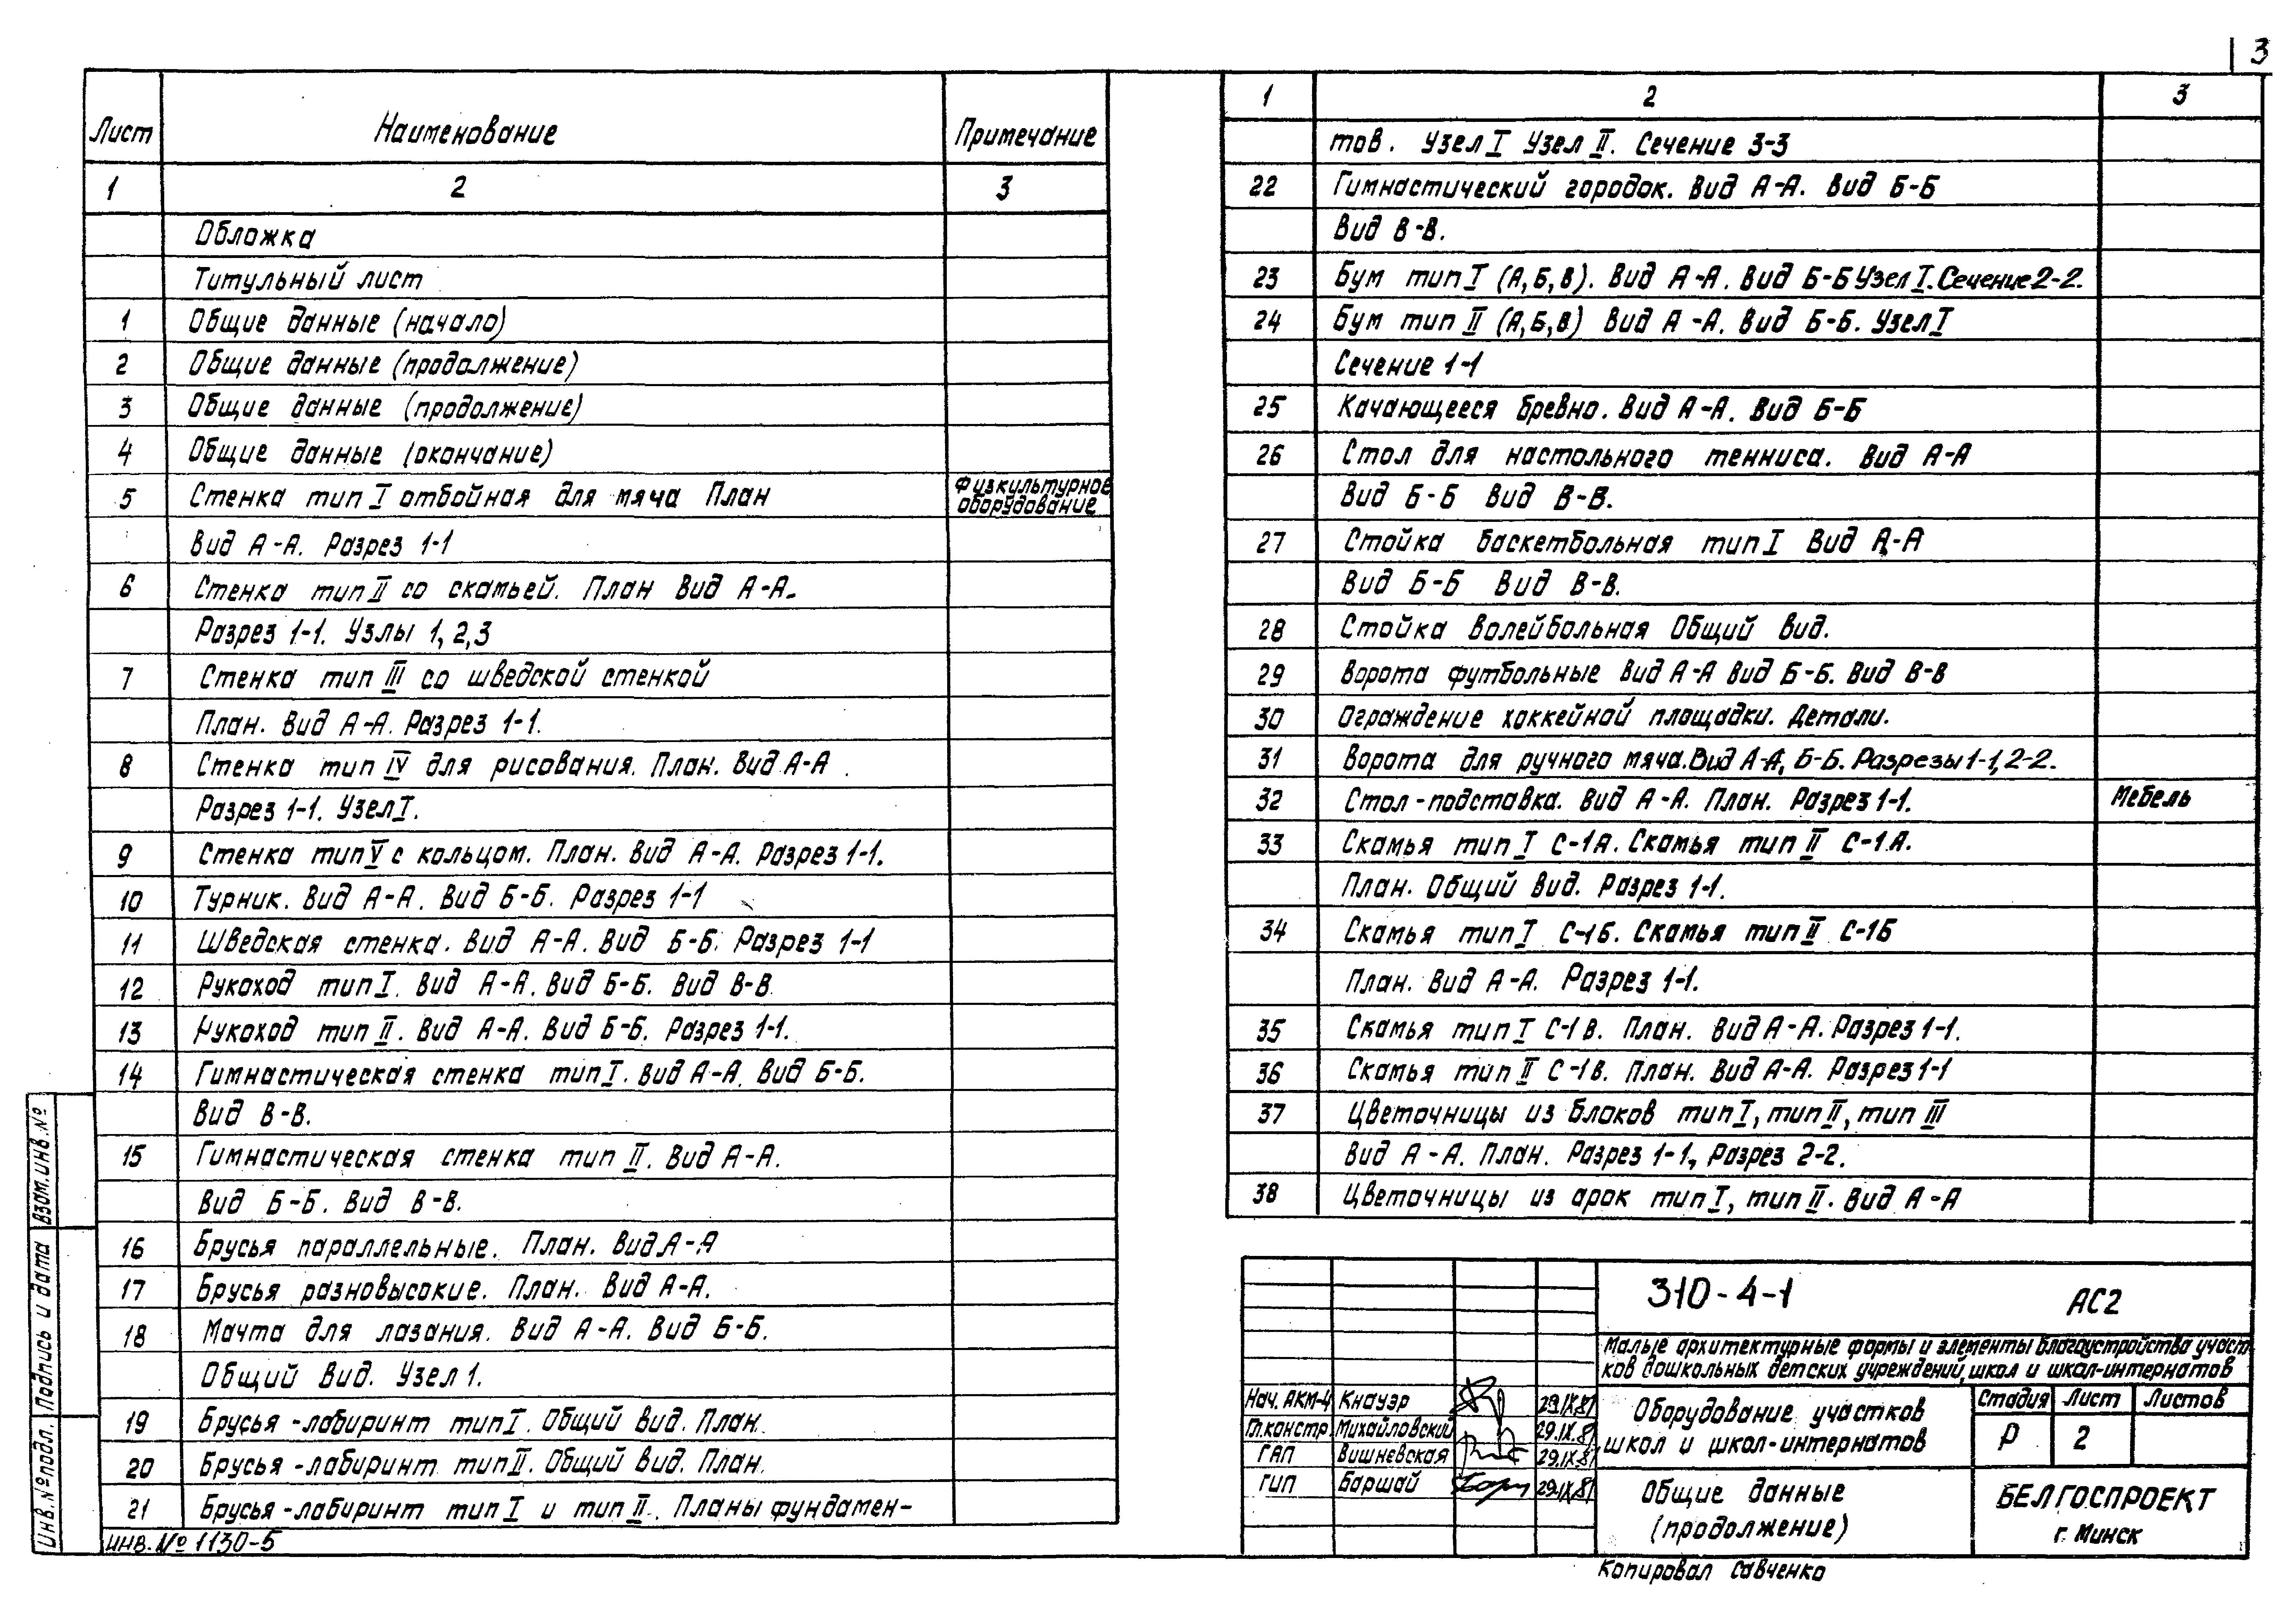 3
Лист Наименование Примечание
1 2 3
Обложка
Титульный лист
1 Общие данные (начало)
2 Общие данные (продолжение)
3 Общие данные (продолжение)
4 Общие данные (окончание)
5 Стенка тип I отбойная для мяча План Физкультурное оборудование
Вид А-А. Разрез 1-1
6 Стенка тип II со скамьей. План Вид А-А.
Разрез 1-1. Узлы 1, 2, 3
7 Стенка тип III со шведской стенкой
План. Вид А-А. Разрез 1-1.
8 Стенка тип IV для рисования. План. Вид А-А.
Разрез 1-1. Узел I.
9 Стенка тип V с кольцом. План. Вид А-А. Разрез 1-1.
10 Турник. Вид А-А. Вид Б-Б. Разрез 1-1
11 Шведская стенка. Вид А-А. Вид Б-Б. Разрез 1-1
12 Рукоход тип I. Вид А-А. Вид Б-Б. Вид В-В.
13 Рукоход тип II. Вид А-А. Вид Б-Б. Разрез 1-1.
14 Гимнастическая стенка тип I. Вид А-А. Вид Б-Б.
Вид В-В.
15 Гимнастическая стенка тип II. Вид А-А.
Вид Б-Б. Вид В-В.
16 Брусья параллельные. План. Вид А-А
17 Брусья разновысокие. План. Вид А-А.
18 Мачта для лазания. Вид А-А. Вид Б-Б.
Общий вид. Узел 1.
19 Брусья-лабиринт тип I. Общий вид. План.
20 Брусья-лабиринт тип II. Общий вид. План.
21 Брусья-лабиринт тип I и тип II. Планы фундамен-
1 2 3
тов. Узел I Узел II. Сечение 3-3
22 Гимнастический городок. Вид А-А. Вид Б-Б
Вид В-В.
23 Бум тип I (А, Б, В). Вид А-А. Вид Б-Б Узел I. Сечение 2-2.
24 Бум тип II (А, Б, В) Вид А-А. Вид Б-Б. Узел I
Сечение 1-1
25 Качающееся бревно. Вид А-А. Вид Б-Б
26 Стол для настольного тенниса. Вид А-А
Вид Б-Б Вид В-В.
27 Стойка баскетбольная тип I Вид А-А
Вид Б-Б Вид В-В.
28 Стойка волейбольная Общий вид.
29 Ворота футбольные Вид А-А Вид Б-Б. Вид В-В
30 Ограждение хоккейной площадки. Детали.
31 Ворота для ручного мяча. Вид А-А, Б-Б. Разрезы 1-1, 2-2.
32 Стол-подставка. Вид А-А. План. Разрез 1-1. Мебель
33 Скамья тип I С-1А. Скамья тип II С-1А.
План. Общий вид. Разрез 1-1.
34 Скамья тип I С-1Б. Скамья тип II С-1Б
План. Вид А-А. Разрез 1-1.
35 Скамья тип I С-1В. План. Вид А-А. Разрез 1-1.
36 Скамья тип II С-1В. План. Вид А-А. Разрез 1-1
37 Цветочницы из блоков тип I, тип II, тип III
Вид А-А. План. Разрез 1-1, Разрез 2-2.
38 Цветочницы из арок тип I, тип II. Вид А-А
310-4-1 АС2
Малые архитектурные формы и элементы благоустройства участ-
ков дошкольных детских учреждений, школ и школ-интернатов
Нач. АКМ-4 Кнауэр 29.IX.81
Гл.констр. Михайловский 29.IX.81
ГАП Вишневская 29.IX.81
ГИП Баршай 29.IX.81
Оборудование участков
школ и школ-интернатов
Стадия Лист Листов
Р 2
Общие данные
(продолжение)
БЕЛГОСПРОЕКТ
г. Минск
Копировал Савченко
Взам.инв.№
Подпись и дата
Инв.№подл.
Инв. № 1130-5